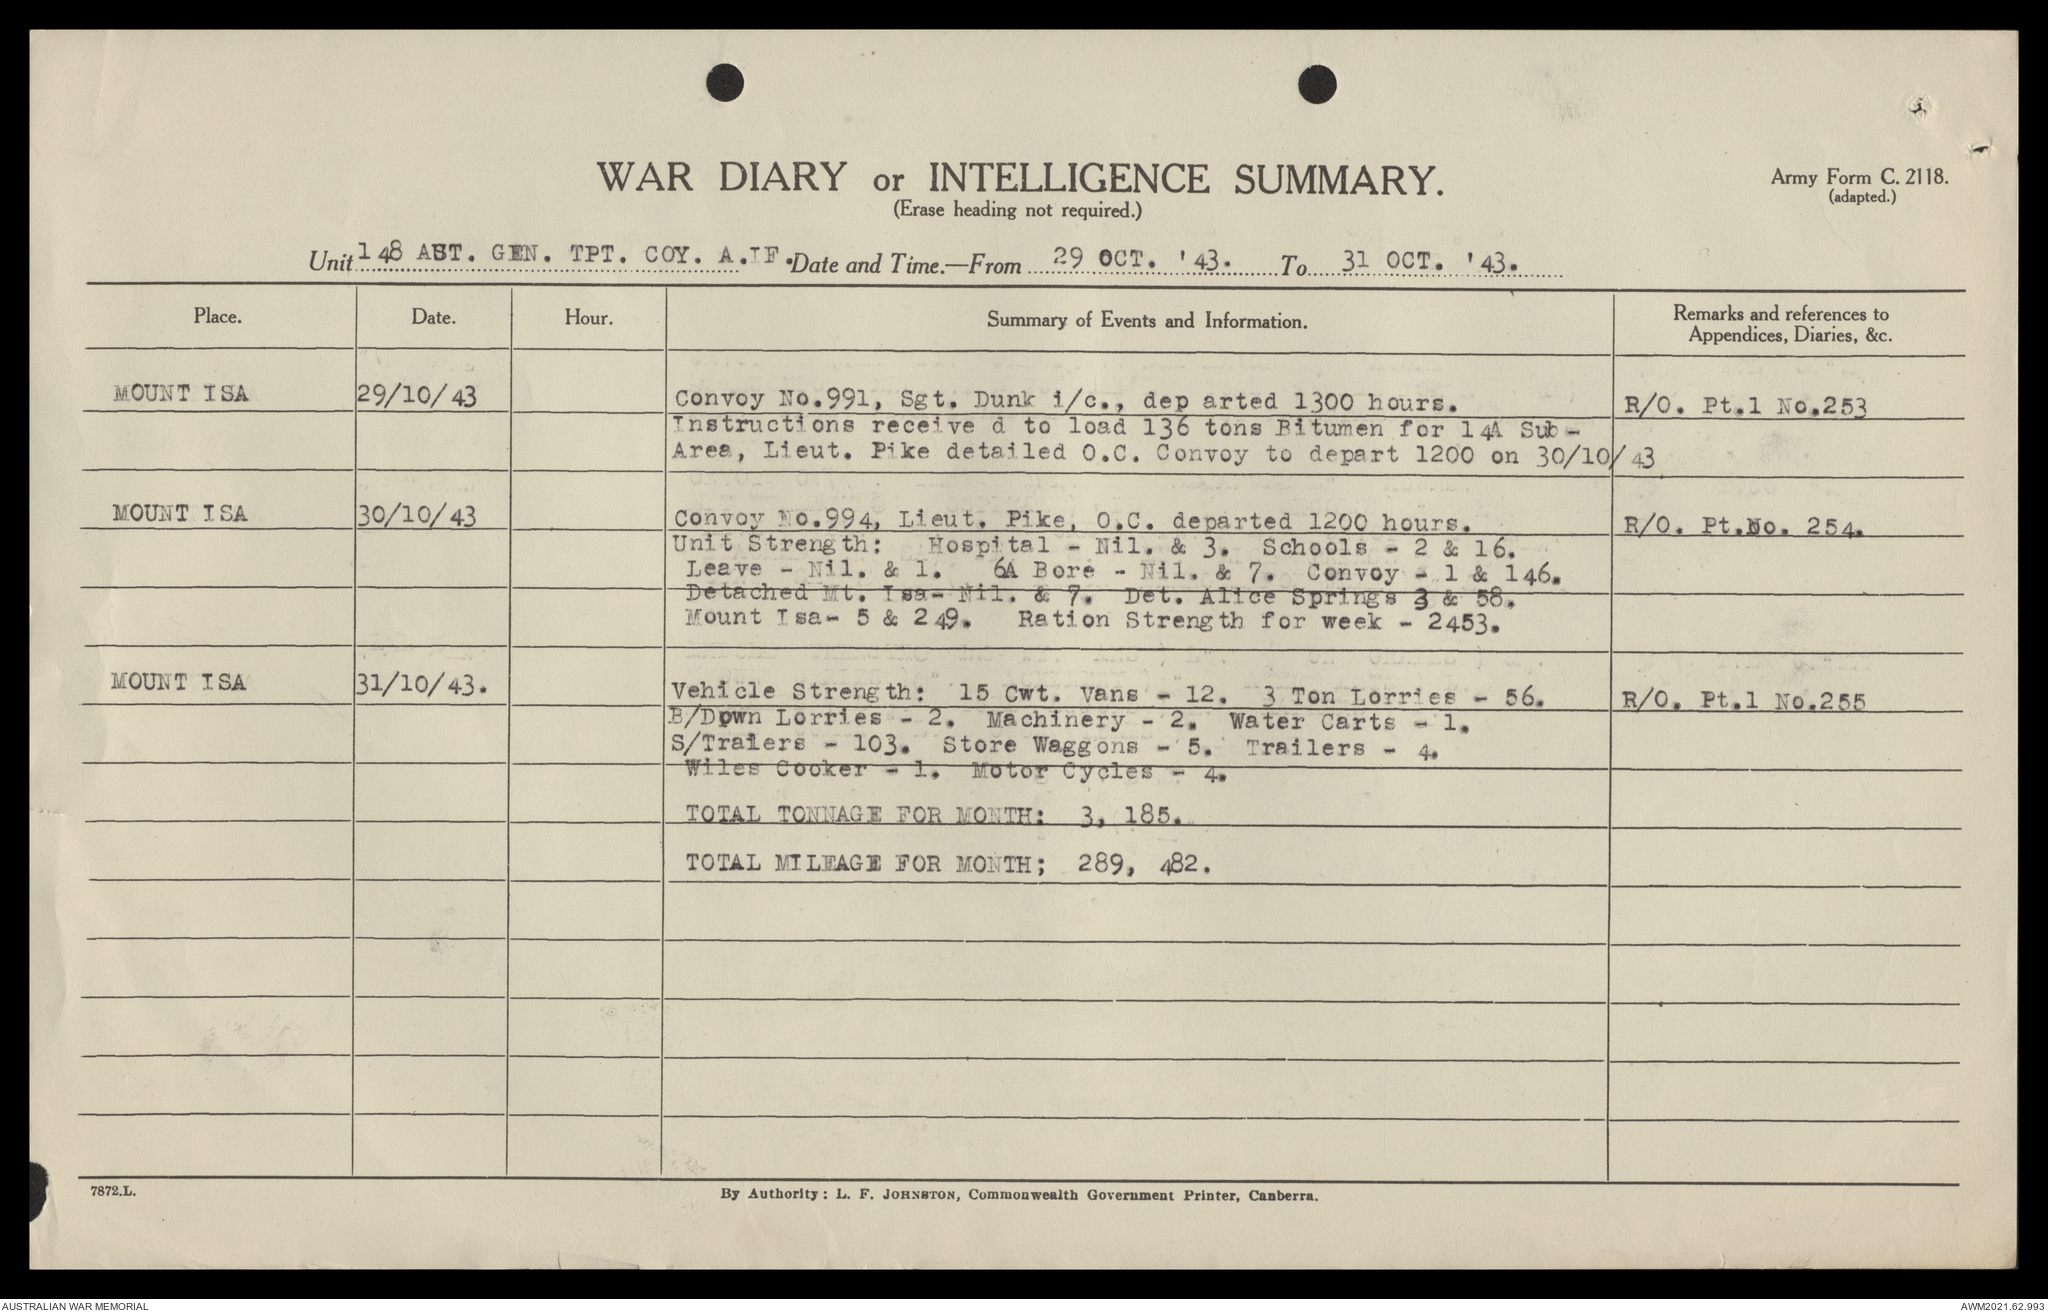 WAR DIARY or INTELLIGENCE SUMMARY.
(Erase heading not required.)
Army Form C. 2118.
(adapted.)
Unit 148 AUST. GEN. TPT. COY. A.IF. Date and Time.—From 29 OCT. '43. To 31 OCT. '43.
Place.
Date.
Hour.
Summary of Events and Information.
Remarks and references to
Appendices, Diaries, &c.
MOUNT ISA 29/10/43 Convoy No.991, Sgt. Dunk i/c., dep arted 1300 hours. R/O. Pt.1 No.253
Instructions receive d to load 136 tons Bitumen for 14A Sub-
Area, Lieut. Pike detailed O.C. Convoy to depart 1200 on 30/10/43
MOUNT ISA 30/10/43 Convoy No.994, Lieut. Pike, O.C. departed 1200 hours. R/O. Pt.No. 254.
Unit Strength: Hospital - Nil. & 3. Schools - 2 & 16.
Leave - Nil. & 1. 6A Bore - Nil. & 7. Convoy - 1 & 146.
Detached Mt. Isa- Nil. & 7. Det. Alice Springs 3 & 58.
Mount Isa- 5 & 249. Ration Strength for week - 2453.
MOUNT ISA 31/10/43. Vehicle Strength: 15 Cwt. Vans - 12. 3 Ton Lorries - 56. R/O. Pt.1 No.255
B/Down Lorries - 2. Machinery - 2. Water Carts - 1.
S/Tralers - 103. Store Waggons - 5. Trailers - 4.
Wiles Cooker - 1. Motor Cycles - 4.
TOTAL TONNAGE FOR MONTH: 3, 185.
TOTAL MILEAGE FOR MONTH; 289, 482.
7872.L.
By Authority: L. F. JOHNSTON, Commonwealth Government Printer, Canberra.
AUSTRALIAN WAR MEMORIAL
AWM2021.62.993